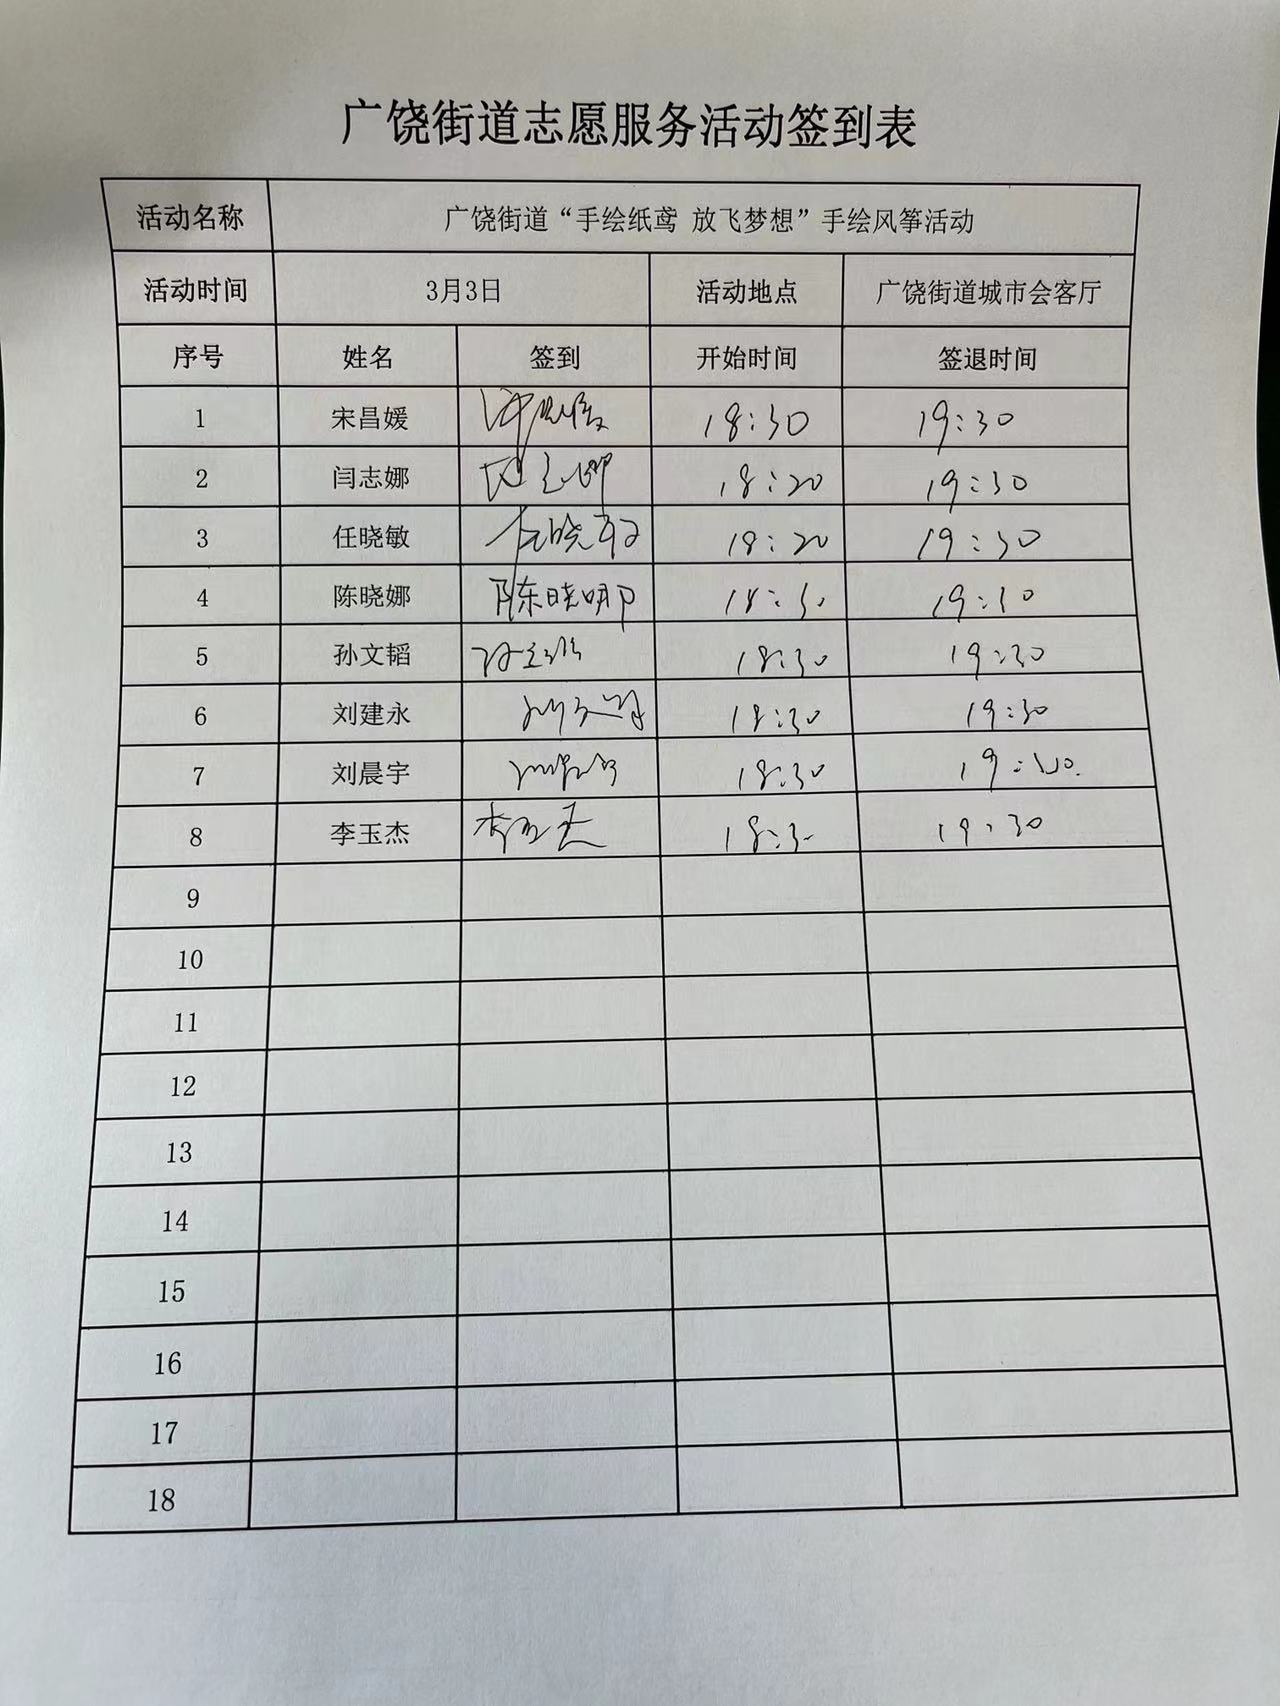 广饶街道志愿服务活动签到表
活动名称 广饶街道“手绘纸鸢 放飞梦想”手绘风筝活动
活动时间 3月3日 活动地点 广饶街道城市会客厅
序号 姓名 签到 开始时间 签退时间
1 宋昌媛 18:30 19:30
2 闫志娜 闫志娜 18:20 19:30
3 任晓敏 任晓敏 18:20 19:30
4 陈晓娜 陈晓娜 18:30 19:30
5 孙文韬 18:30 19:30
6 刘建永 18:30 19:30
7 刘晨宇 刘晨宇 18:30 19:30
8 李玉杰 李玉杰 18:30 19:30
9
10
11
12
13
14
15
16
17
18